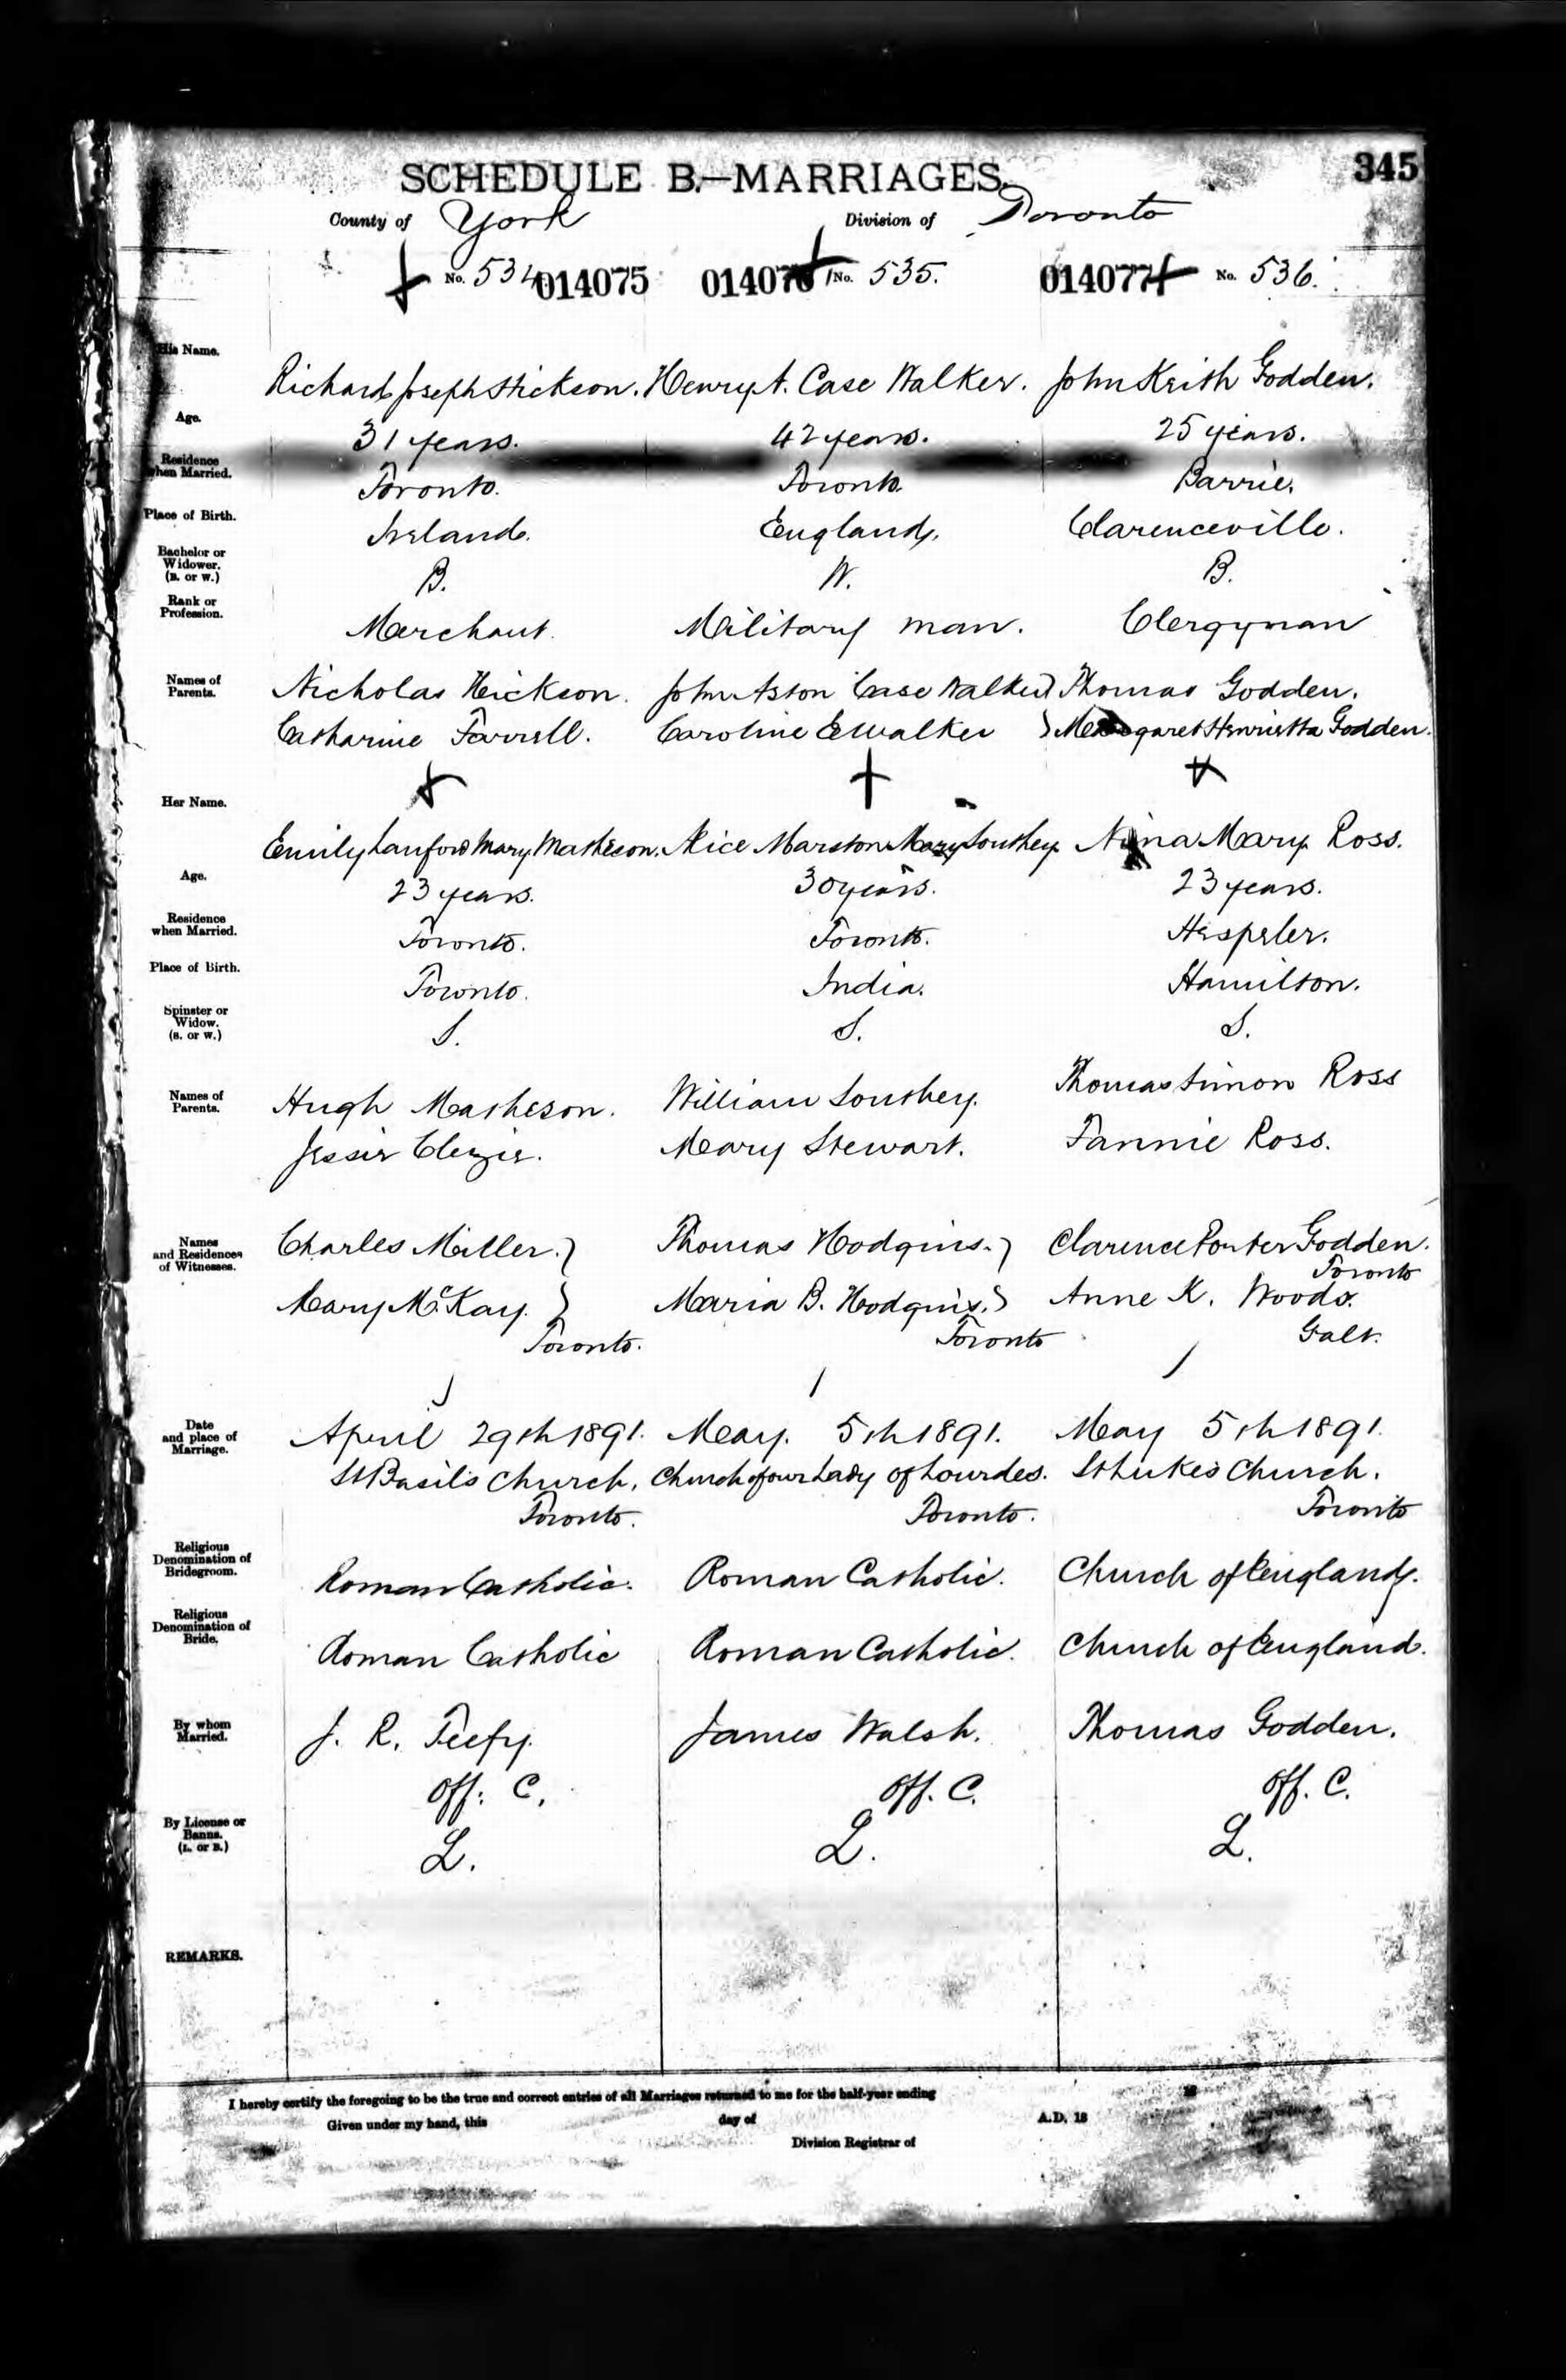 345
SCHEDULE B.—MARRIAGES.
County of York Division of Toronto
No. 534 014075 014076 No. 535. 014077 No. 536.
His Name.
Richard Joseph Hickson. Henry A. Case Walker. John Keith Godden.
Age.
31 years. 42 years. 25 years.
Residence when Married.
Toronto. Toronto. Barrie.
Place of Birth.
Ireland. England. Clarenceville.
Bachelor or Widower. (B. or W.)
B. W. B.
Rank or Profession.
Merchant. Military man. Clergyman
Names of Parents.
Nicholas Hickson. John Aston Case Walker} Thomas Godden.
Catharine Farrell. Caroline E Walker } Margaret Henrietta Godden.
Her Name.
Emily Lanford Mary Matheson. Alice Marston Mary Southey. Nina Mary Ross.
Age.
23 years. 30 years. 23 years.
Residence when Married.
Toronto. Toronto. Hespeler.
Place of Birth.
Toronto. India. Hamilton.
Spinster or Widow. (S. or W.)
S. S. S.
Names of Parents.
Hugh Matheson. William Southey. Thomas Simon Ross
Jessie Clezie. Mary Stewart. Fannie Ross.
Names and Residences of Witnesses.
Charles Miller.} Thomas Hodgins.} Clarence Porter Godden.
Toronto
Mary McKay. } Maria B. Hodgins.} Anne K. Woods.
Toronto. Toronto Galt.
Date and place of Marriage.
April 29th 1891. May. 5th 1891. May 5th 1891.
St Basil's Church. Church of our Lady of Lourdes. St Luke's Church.
Toronto. Toronto. Toronto
Religious Denomination of Bridegroom.
Roman Catholic. Roman Catholic. Church of England.
Religious Denomination of Bride.
Roman Catholic Roman Catholic. Church of England.
By whom Married.
J. R. Teefy. James Walsh. Thomas Godden.
Off. C. Off. C. Off. C.
By License or Banns. (L. or B.)
L. L. L.
REMARKS.
I hereby certify the foregoing to be the true and correct entries of all Marriages returned to me for the half-year ending 18
Given under my hand, this day of A.D. 18
Division Registrar of